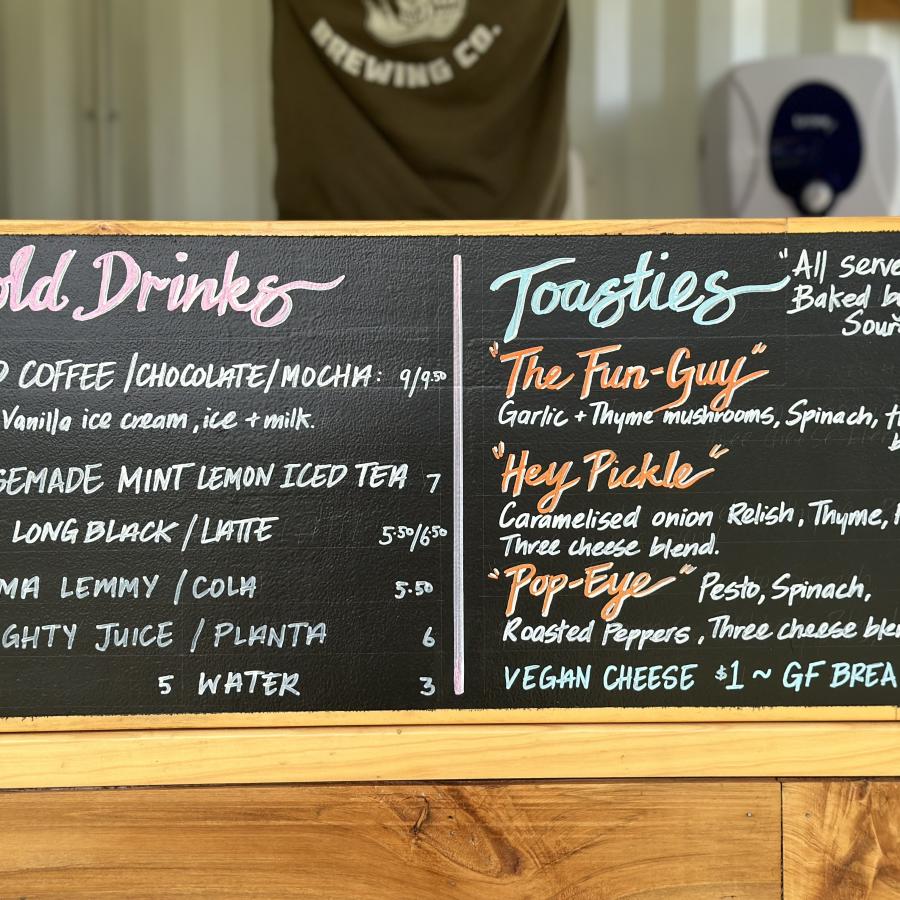 BREWING CO.
old Drinks
COFFEE / CHOCOLATE / MOCHA: 9/9.50
Vanilla ice cream, ice + milk.
SEMADE MINT LEMON ICED TEA 7
LONG BLACK / LATTE 5.50/6.50
MA LEMMY / COLA 5.50
GHTY JUICE / PLANTA 6
5 WATER 3
Toasties
"All serve
Baked b
Sour
"The Fun-Guy"
Garlic + Thyme mushrooms, Spinach,
"Hey Pickle"
Caramelised onion Relish, Thyme,
Three cheese blend.
"Pop-Eye" Pesto, Spinach,
Roasted Peppers, Three cheese blen
VEGAN CHEESE $1 ~ GF BREA